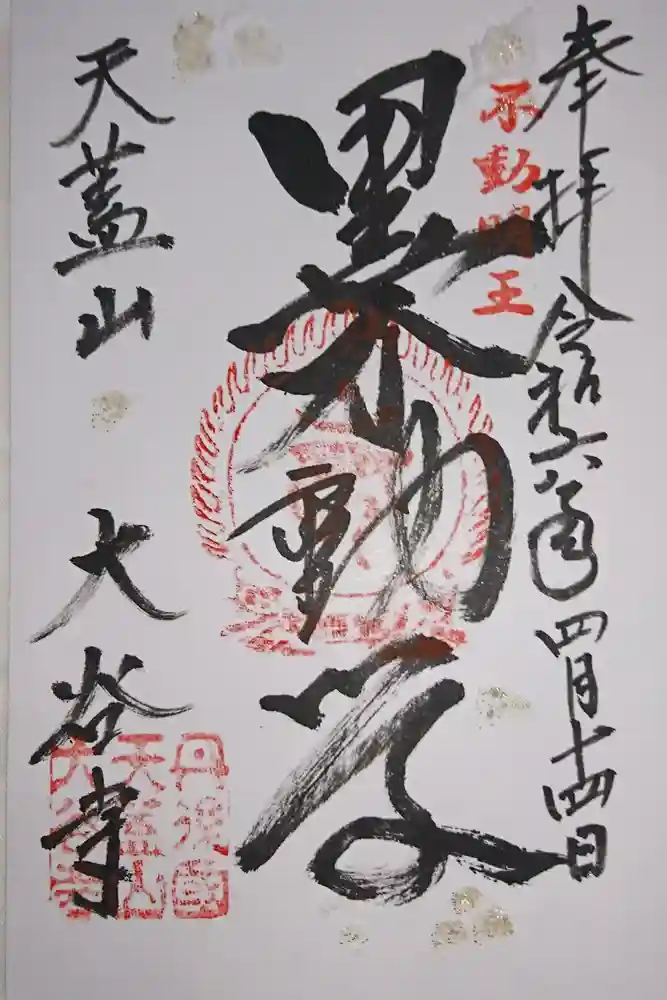 奉拝 令和六年四月十四日
不動明王
黒不動尊
天蓋山 大谷寺
丹後國
天蓋山
大谷寺